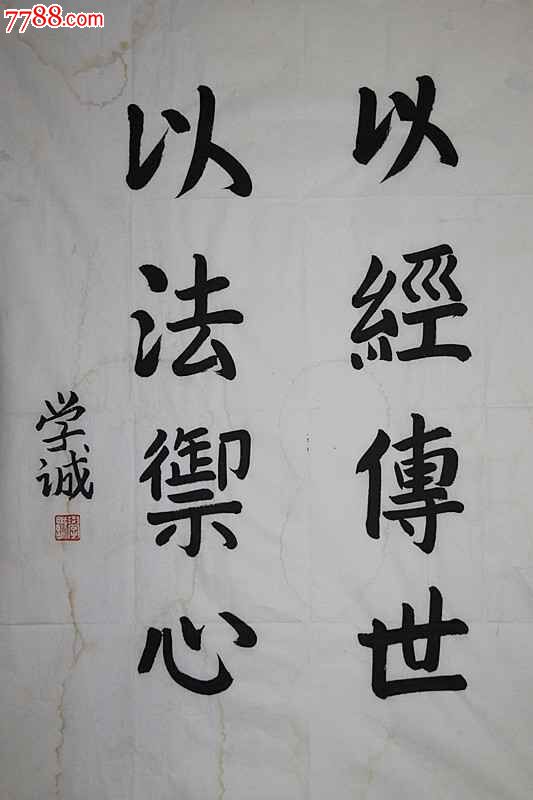 7788.com
以經傳世
以法禦心
学诚